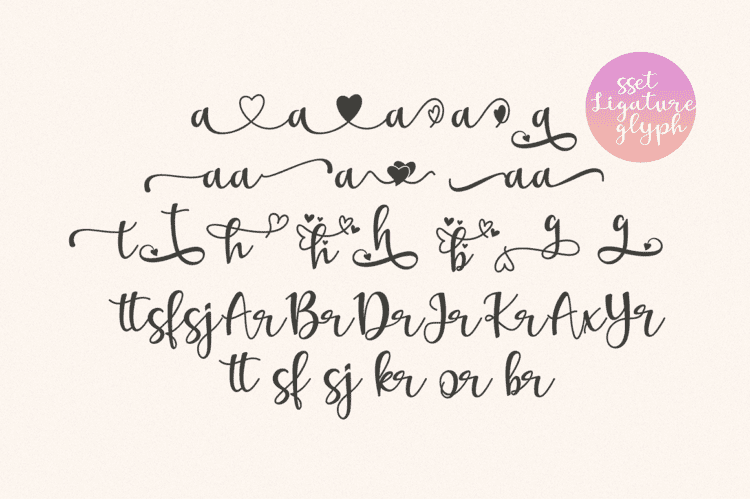 sset
Ligature
glyph
a a a a a
aa a aa
t t h h h b g g
tt sf sj Ar Br Dr Jr Kr Ax Yr
tt sf sj kr or br